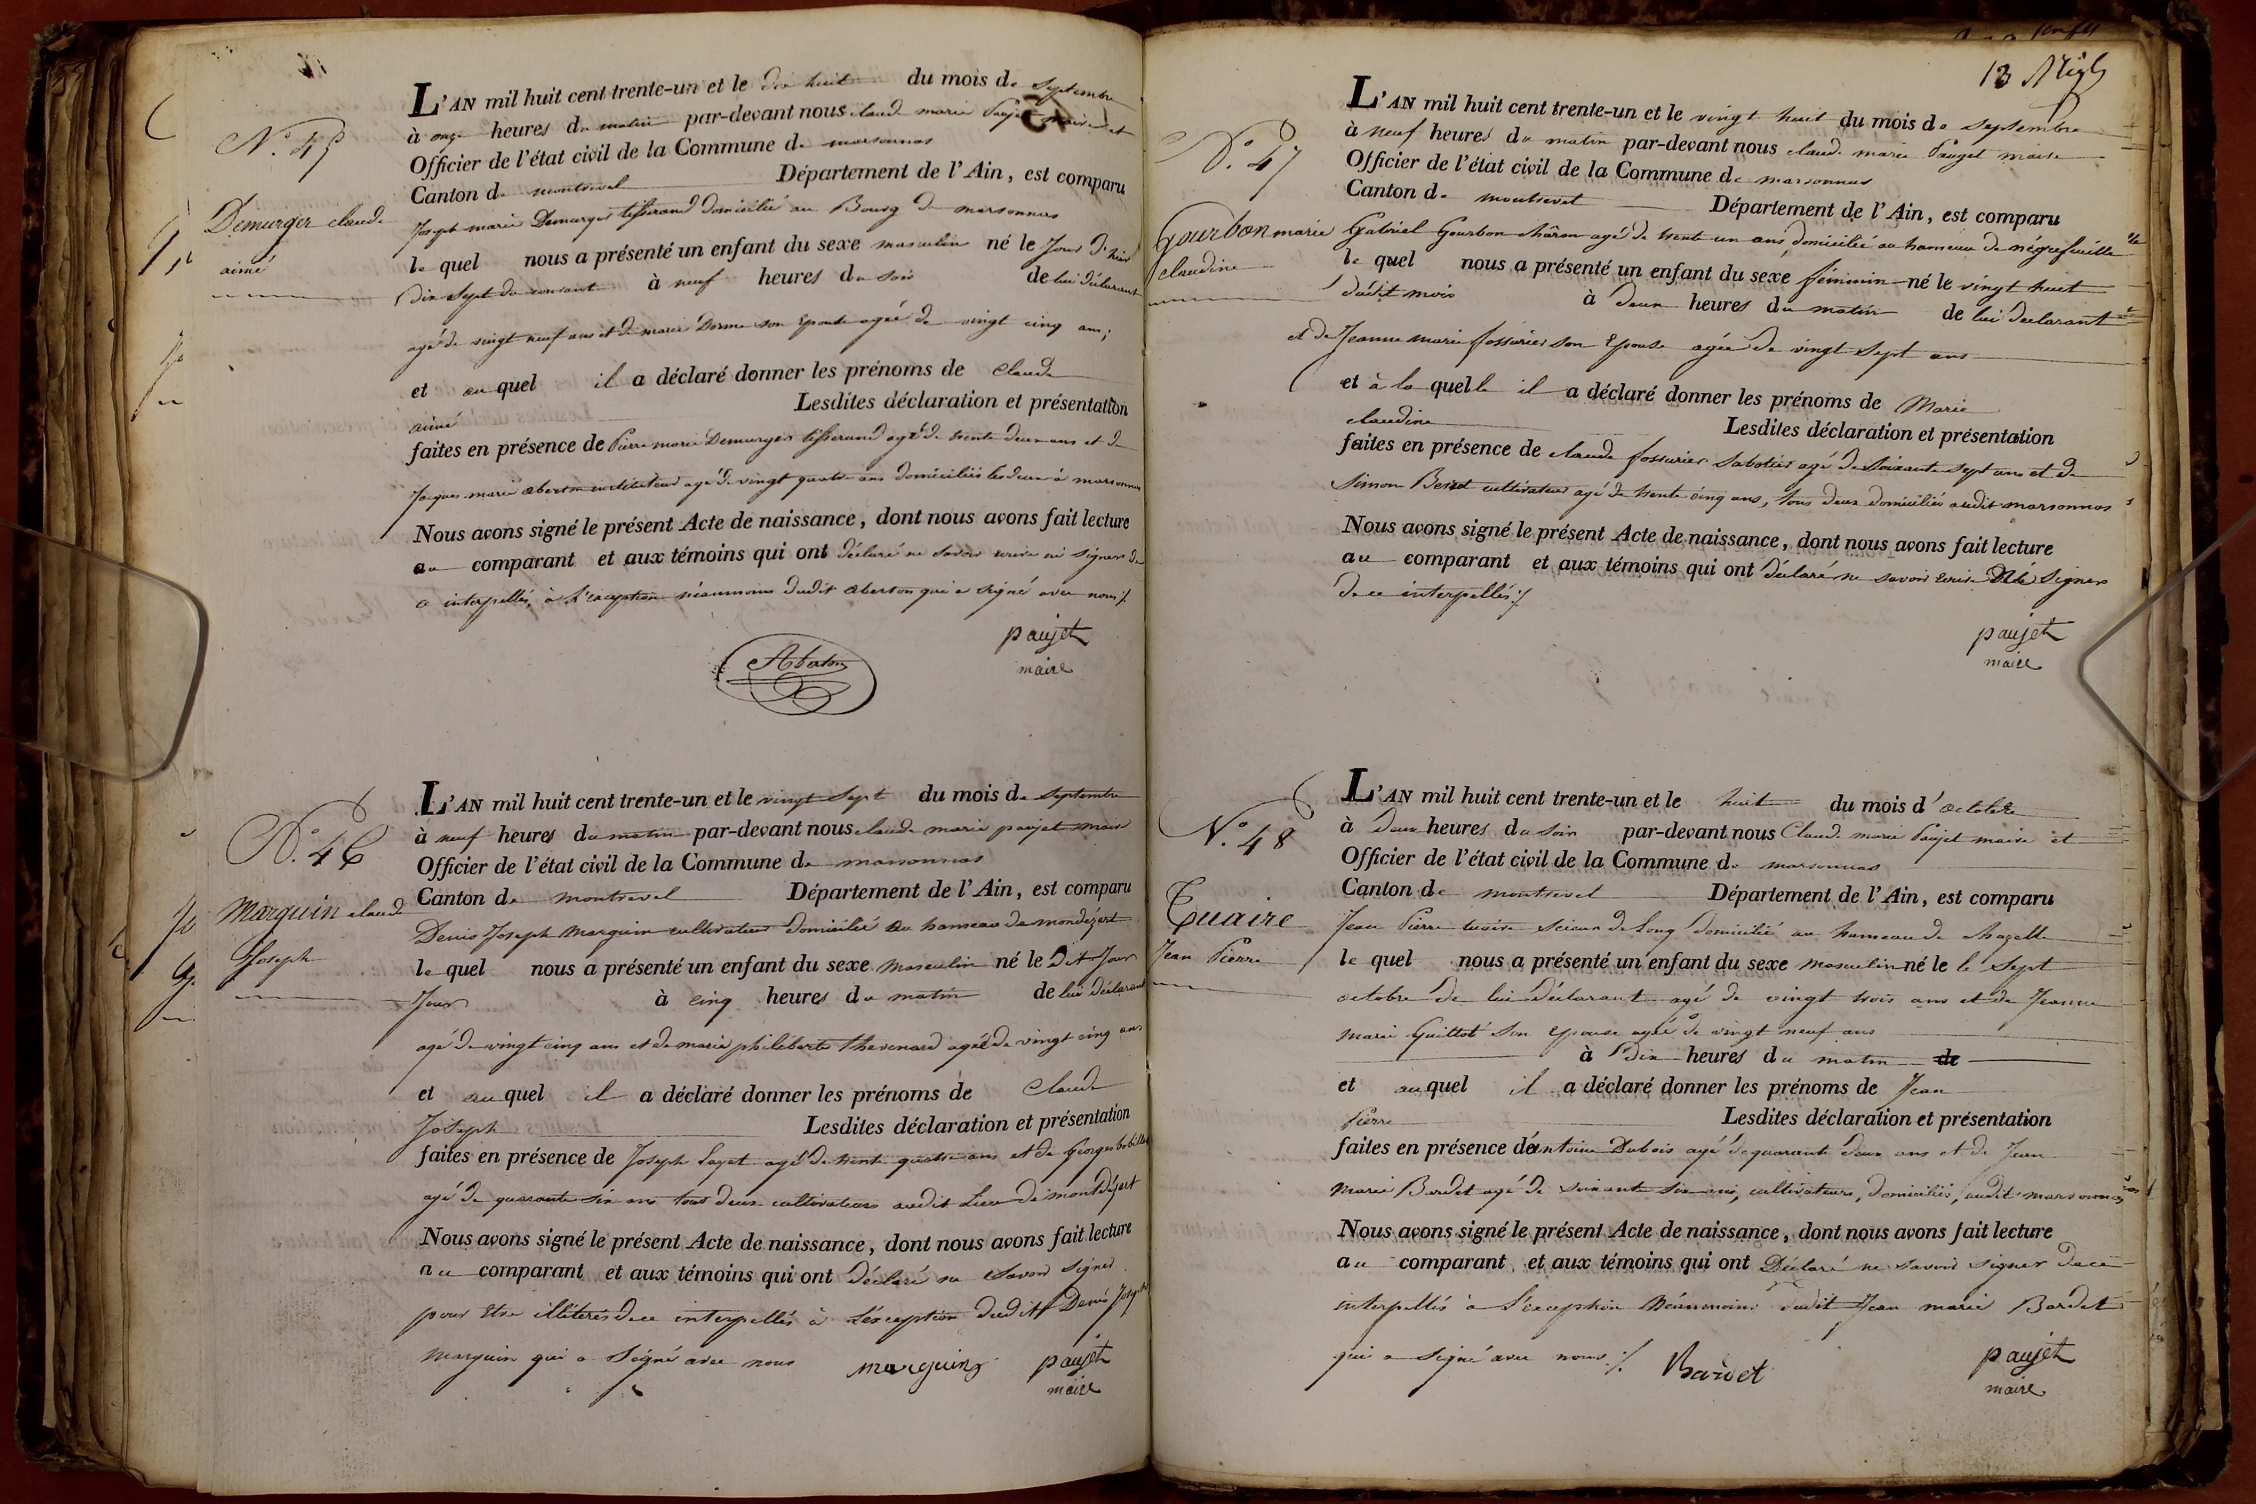 N.° 45
Demurger claude
aimé
L'AN mil huit cent trente-un et le dix huit du mois de septembre
à onze heures du matin par-devant nous claude marie Paujet maire et
Officier de l'état civil de la Commune de marsonnas
Canton de montrevel Département de l'Ain, est comparu
Joseph marie Demurger tisserand domicilié au Bourg de marsonnas
le quel nous a présenté un enfant du sexe masculin né le Jour d'hier
Dix Sept du courant à neuf heures du soir de lui déclarant
agé de vingt neuf ans et de marie son Epouse agée de vingt cinq ans;
et au quel il a déclaré donner les prénoms de claude
aimé Lesdites déclaration et présentation
faites en présence de Pierre marie Demurger tisserand agé de trente deux ans et de
Jacques marie aberton instituteur agé de vingt quatre ans domiciliés les deux à marsonnas
Nous avons signé le présent Acte de naissance, dont nous avons fait lecture
au comparant et aux témoins qui ont déclaré ne savoir ecrire ni signer de
ce interpellés, à l'exception néanmoins dudit aberton qui a signé avec nous ./.
Aberton
paujet
maire
N.° 46
Marguin claude
Joseph
L'AN mil huit cent trente-un et le vingt Sept du mois de septembre
à neuf heures du matin par-devant nous claude marie paujet maire
Officier de l'état civil de la Commune de marsonnas
Canton de montrevel Département de l'Ain, est comparu
Denis Joseph Marguin cultivateur domicilié au hameau de mondezert
le quel nous a présenté un enfant du sexe masculin né le Dit Jour
Jour à cinq heures du matin de lui déclarant
agé de vingt cinq ans et de marie philiberte thevenard agée de vingt cinq ans
et au quel il a déclaré donner les prénoms de Claude
Joseph Lesdites déclaration et présentation
faites en présence de Joseph agé de trente quatre ans et de Georges
agé de quarante six ans tous deux cultivateurs audit Lieu de montdéjert
Nous avons signé le présent Acte de naissance, dont nous avons fait lecture
au comparant et aux témoins qui ont déclaré ne savoir signer
pour Etre illitérés de ce interpellés à l'éxception dudit Denis Joseph
Marguin qui a Signé avec nous
marguin
paujet
maire
13
N.° 47
Gourbon marie
claudine
L'AN mil huit cent trente-un et le vingt huit du mois de septembre
à neuf heures du matin par-devant nous claude marie Paujet maire
Officier de l'état civil de la Commune de marsonnas
Canton de montrevel Département de l'Ain, est comparu
Gabriel Gourbon châron agé de trente un ans domicilié au hameau de négrefeuille
le quel nous a présenté un enfant du sexe féminin né le vingt huit
dudit mois à Deux heures du matin de lui déclarant
et de Jeanne marie fossurier son Epouse agée de vingt Sept ans
et à la quelle il a déclaré donner les prénoms de Marie
claudine Lesdites déclaration et présentation
faites en présence de claude fossurier Sabotier agé de Soixante sept ans et de
Simon cultivateur agé de trente cinq ans, tous deux domiciliés audit marsonnas
Nous avons signé le présent Acte de naissance, dont nous avons fait lecture
au comparant et aux témoins qui ont déclaré ne savoir ecrire Signer
de ce interpellés ./.
paujet
maire
N.° 48
Tuaire
Jean Pierre
L'AN mil huit cent trente-un et le huit du mois d'octobre
à Deux heures du soir par-devant nous Claude marie Paujet maire et
Officier de l'état civil de la Commune de marsonnas
Canton de montrevel Département de l'Ain, est comparu
Jean Pierre tuaire Scieur de Long domicilié au hameau de chazelle
le quel nous a présenté un enfant du sexe masculin né le le Sept
octobre de lui déclarant agé de vingt trois ans et de Jeanne
marie Guillot son Epouse agée de vingt neuf ans
à Dix heures du matin de
et au quel il a déclaré donner les prénoms de Jean
Pierre Lesdites déclaration et présentation
faites en présence d'antoine Dubois agé de quarante deux ans et de Jean
Marie Bardet agé de soixante six ans, cultivateurs, domiciliés, audit marsonnas
Nous avons signé le présent Acte de naissance, dont nous avons fait lecture
au comparant et aux témoins qui ont Déclaré ne savoir signer de ce
interpellés à L'exception Néanmoins dudit Jean marie Bardet
qui a signé avec nous ./.
Bardet
paujet
maire